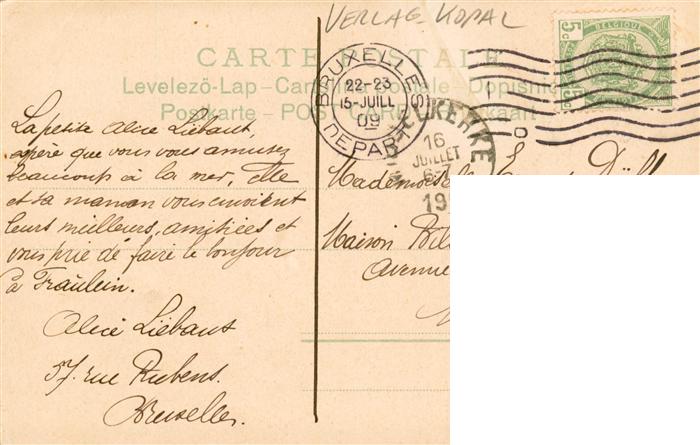 VERLAG KOPAL
CARTE POSTALE
Levelezö-Lap - Cartolina postale - Dopisnice
Postkarte - POST CARD - Briefkaart
BELGIQUE
5c 5c
BRUXELLES
22-23
15-JUILL
09
DEPART
KERKE
16
JUILLET
6-7
19
La petite Alice Liebaut,
espère que vous vous amusez
beaucoup à la mer, Elle
et sa maman vous envoient
leurs meilleurs amitiées et
vous prie de faire le bonjour
à Fraülein.
Alice Liebaut
57. rue Rubens.
Bruxelles.
Mademoiselle
Maison
Avenue